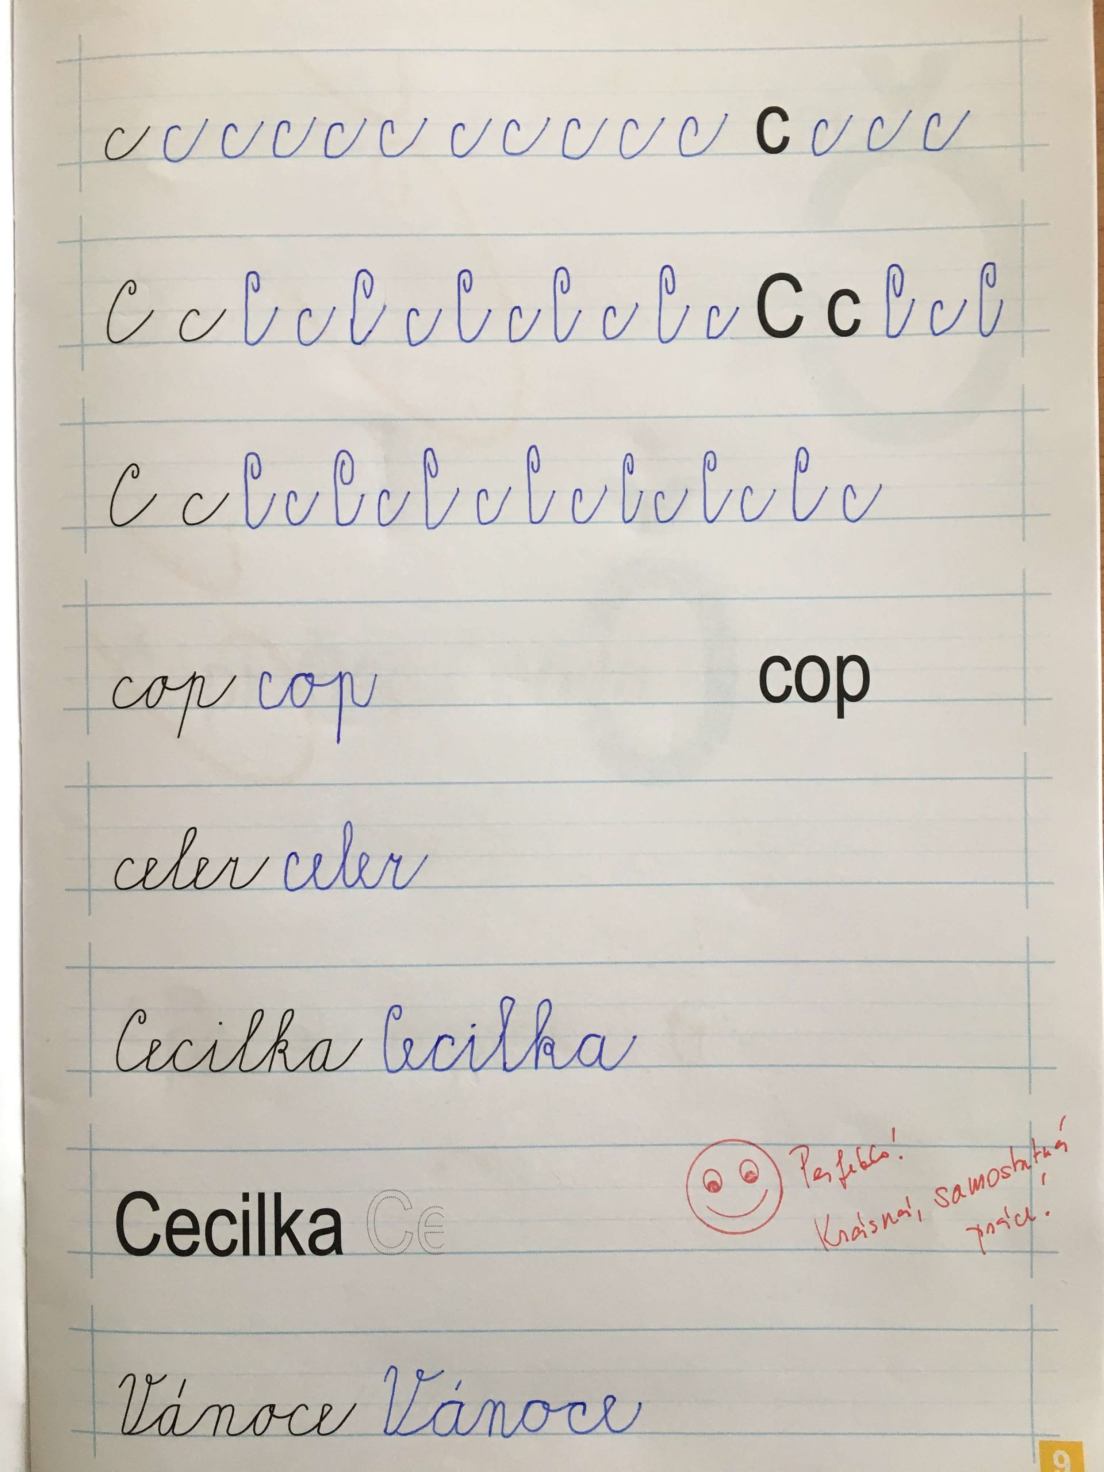 c c c c c c c c c c c c c c c
C c C c C c C c C c C c C c C c C
C c C c C c C c C c C c C c C c
cop cop cop
celer celer
Cecilka Cecilka
Cecilka Ce
Krásná, samostatná
práce!
Vánoce Vánoce
9